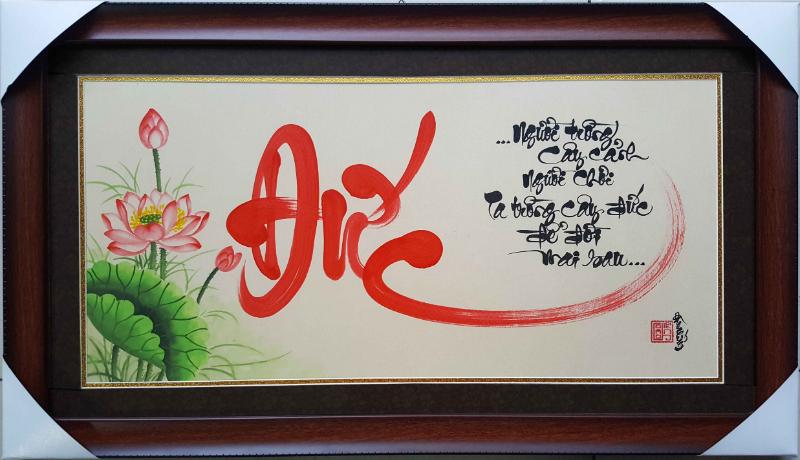 Đức
...Người trồng
Cây cảnh
Người chơi
Ta trồng cây đức
để đời
mai sau...